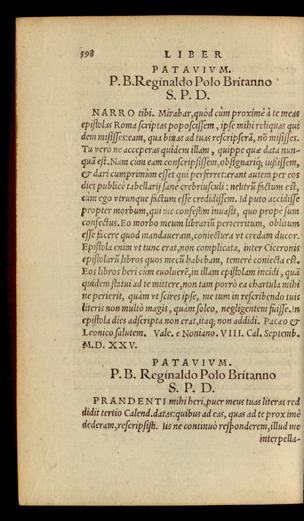 598 LIBER
PATAVIVM.
P. B. Reginaldo Polo Britanno
S. P. D.
NARRO tibi. Mirabar, quòd cùm proximè à te meas
epistolas Roma scriptas poposcissem, ipse mihi reliquas qui
dem misisses: eam, qua binas ad tuas rescripserā, nō misisses.
Tu verò ne acceperas quidem illam, quippe quæ data nun-
quā est. Nam cùm eam conscripsissem, obsignariq; iussissem,
& dari cum primùm esset qui perferret: erant autem per eos
dies publicè tabellarij sanè crebriusculi: neutrū factum est,
cum ego vtrunque factum esse credidissem. Id puto accidisse
propter morbum, qui me confestim inuasit, quo propè sum
confectus. Eo morbo meum librarij perterritum, oblitum
esse facere quod mandaueram, coniectura vt credam ducor.
Epistola enim vt tunc erat, non complicata, inter Ciceronis
epistolarū libros quos mecū habebam, temerè coniecta est.
Eos libros heri cùm euoluerē, in illam epistolam incidi, quā
quidem statui ad te mittere, non tam porrò ea chartula mihi
ne perierit, quàm vt scires ipse, me tum in rescribendo tuis
literis non multò magis, quàm soleo, negligentem fuisse. In
epistola dies adscripta non erat, itaq; non addidi. Pacæo &
Leonico salutem. Vale. è Noniano. VIII. Cal. Septemb.
M. D. XXV.
PATAVIVM.
P. B. Reginaldo Polo Britanno
S. P. D.
PRANDENTI mihi heri, puer meus tuas literas red
didit tertio Calend. datas: quibus ad eas, quas ad te proximè
dederam, rescripsisti. Iis ne continuò responderem, illud me
interpella-